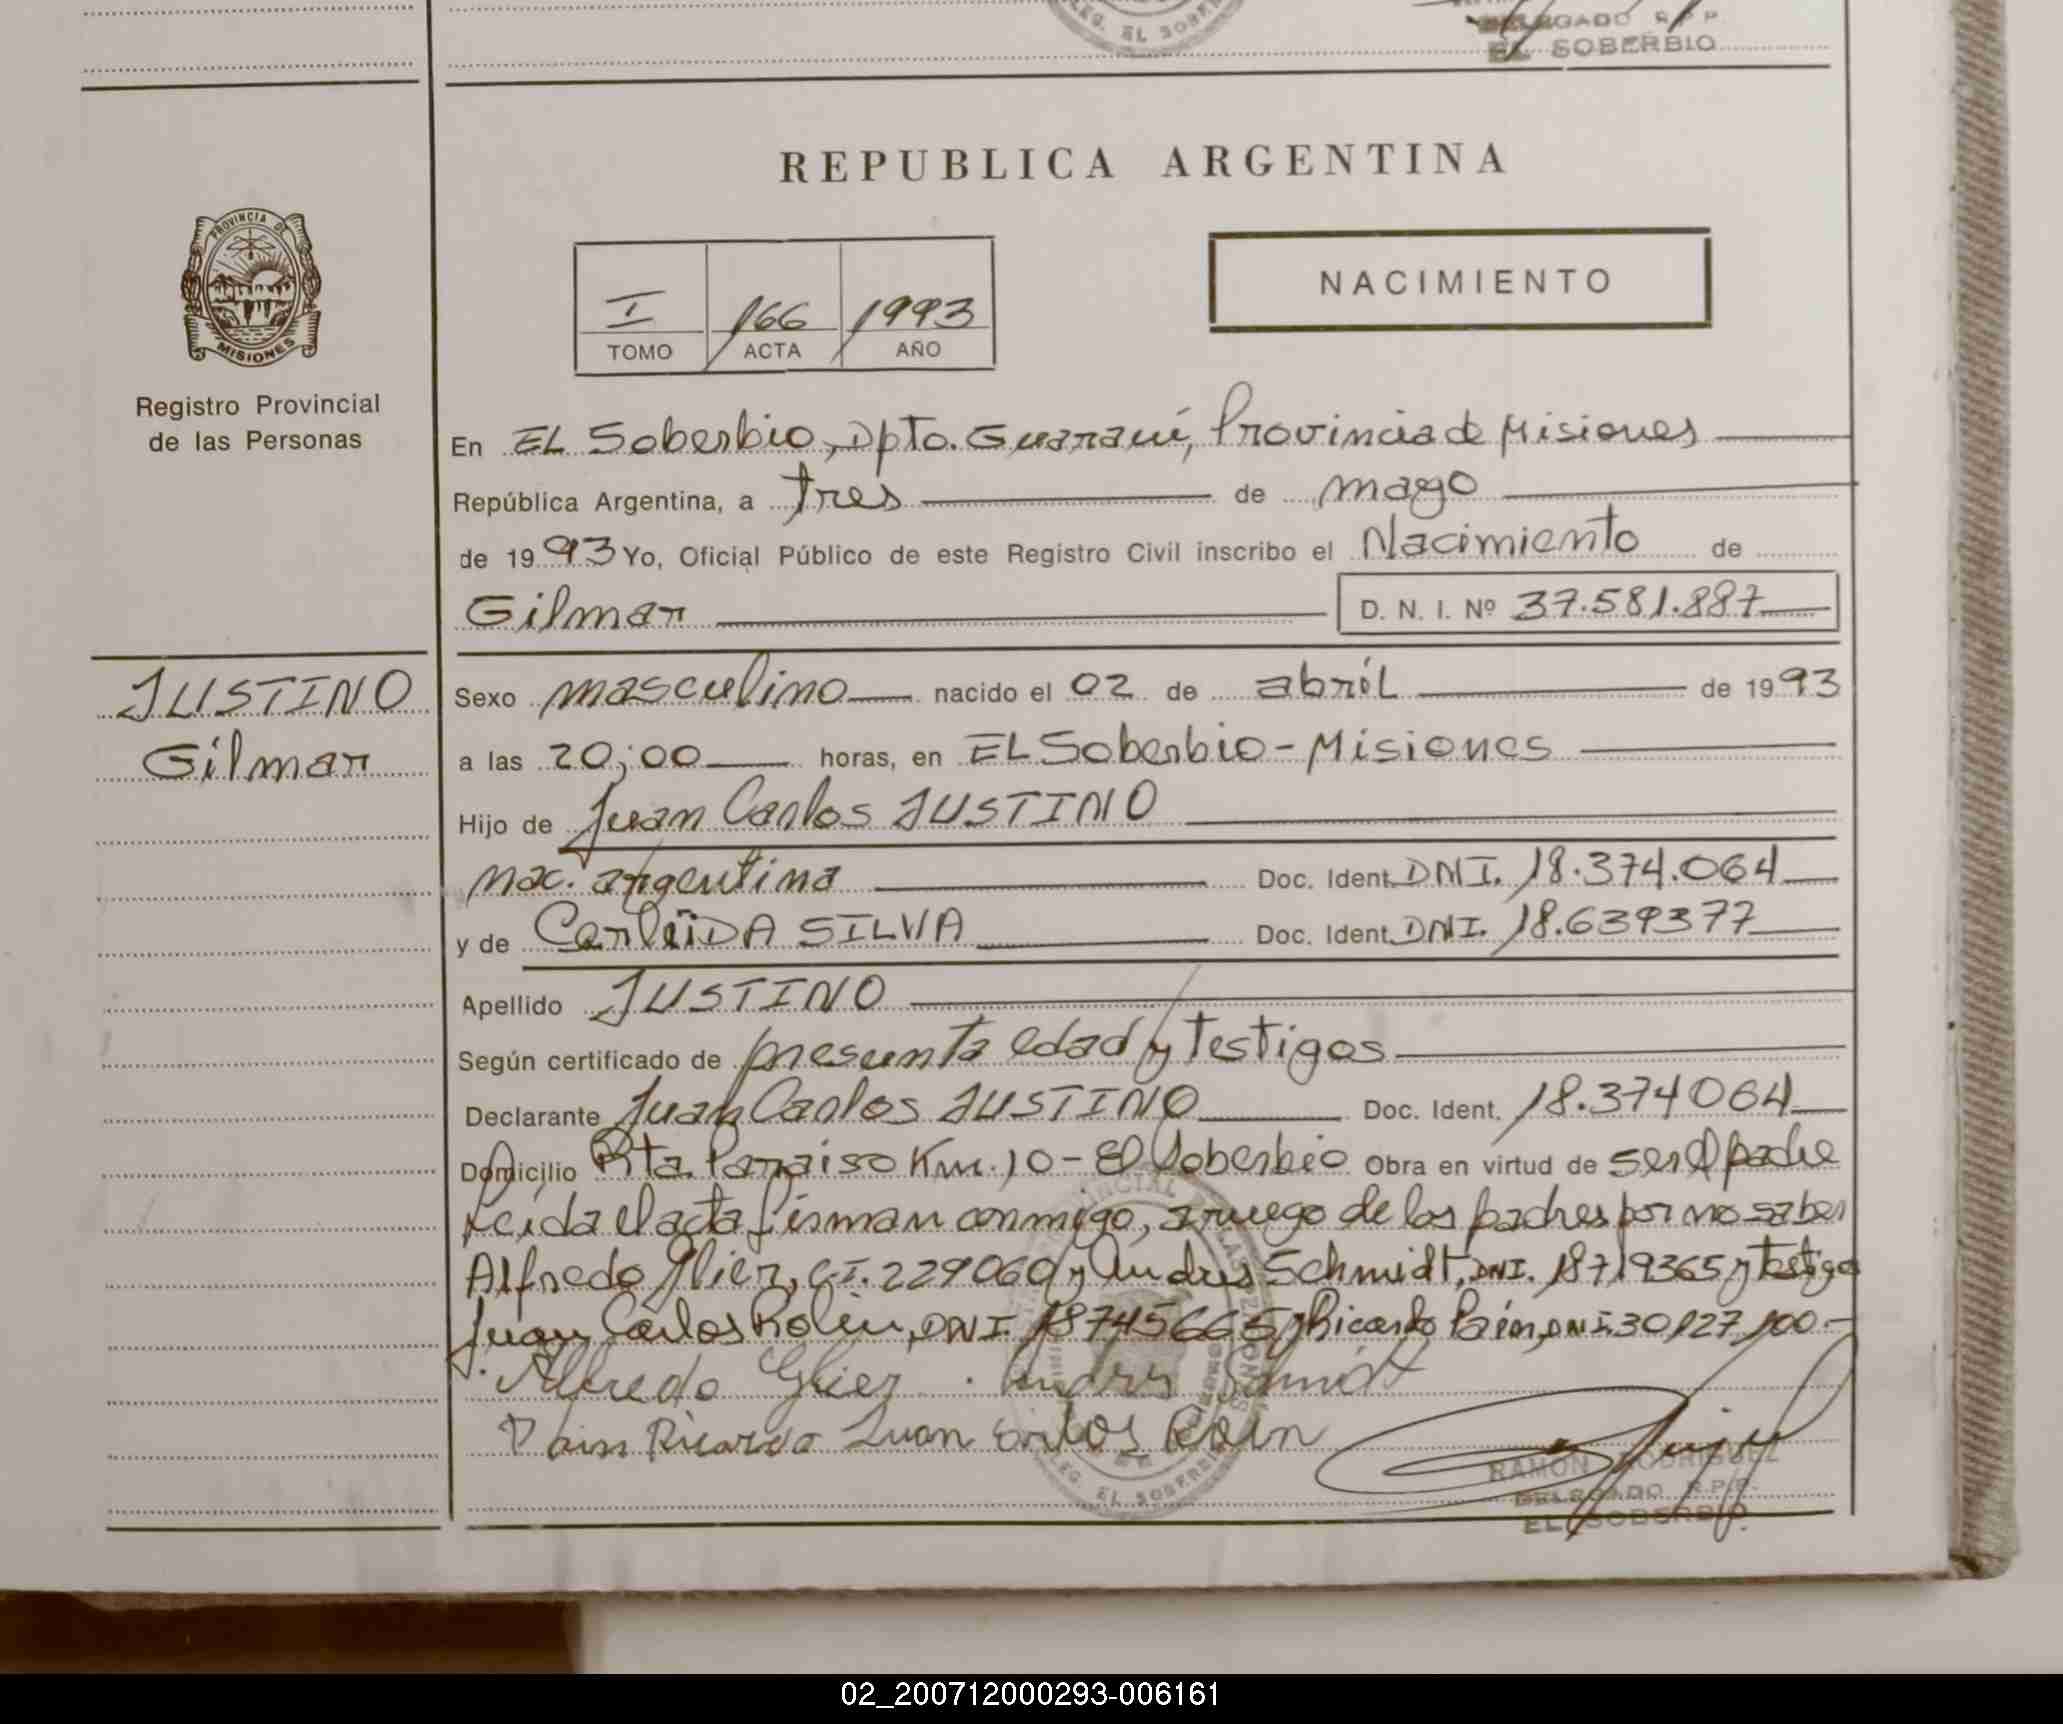 LEG. EL SOBER
DELEGADO R.P.P.
EL SOBERBIO
REPUBLICA ARGENTINA
PROVINCIA DE
MISIONES
Registro Provincial
de las Personas
NACIMIENTO
I 166 1993
TOMO ACTA AÑO
En EL Soberbio, Dpto. Guaraní, Provincia de Misiones
República Argentina, a tres de mayo
de 1993 Yo, Oficial Público de este Registro Civil inscribo el Nacimiento de
Gilmar D. N. I. Nº 37.581.887
JUSTINO
Gilmar
Sexo masculino nacido el 02 de abril de 1993
a las 20;00 horas, en EL Soberbio - Misiones
Hijo de Juan Carlos JUSTINO
nac. argentina Doc. Ident. DNI. 18.374.064
y de SILVA Doc. Ident. DNI. 18.639377
Apellido JUSTINO
Según certificado de presunta edad y Testigos
Declarante Juan Carlos JUSTINO Doc. Ident. 18.374064
Domicilio Pta. Paraiso Km. 10 - El Soberbio Obra en virtud de ser el padre
Leida el acta firman conmigo, a ruego de los padres por no saber
Alfredo Glier, C.I. 229060 y Andres Schmidt, DNI. 18719365 y Testigos
Juan Carlos Rolin, DNI. 18745665 y Ricardo DNI 30127100.-
Alfredo Glier . Andres
Ricardo Juan Carlos
LEG. EL SOBERBIO
RAMON RODRIGUEZ
DELEGADO R.P.P.
EL SOBERBIO
02_200712000293-006161